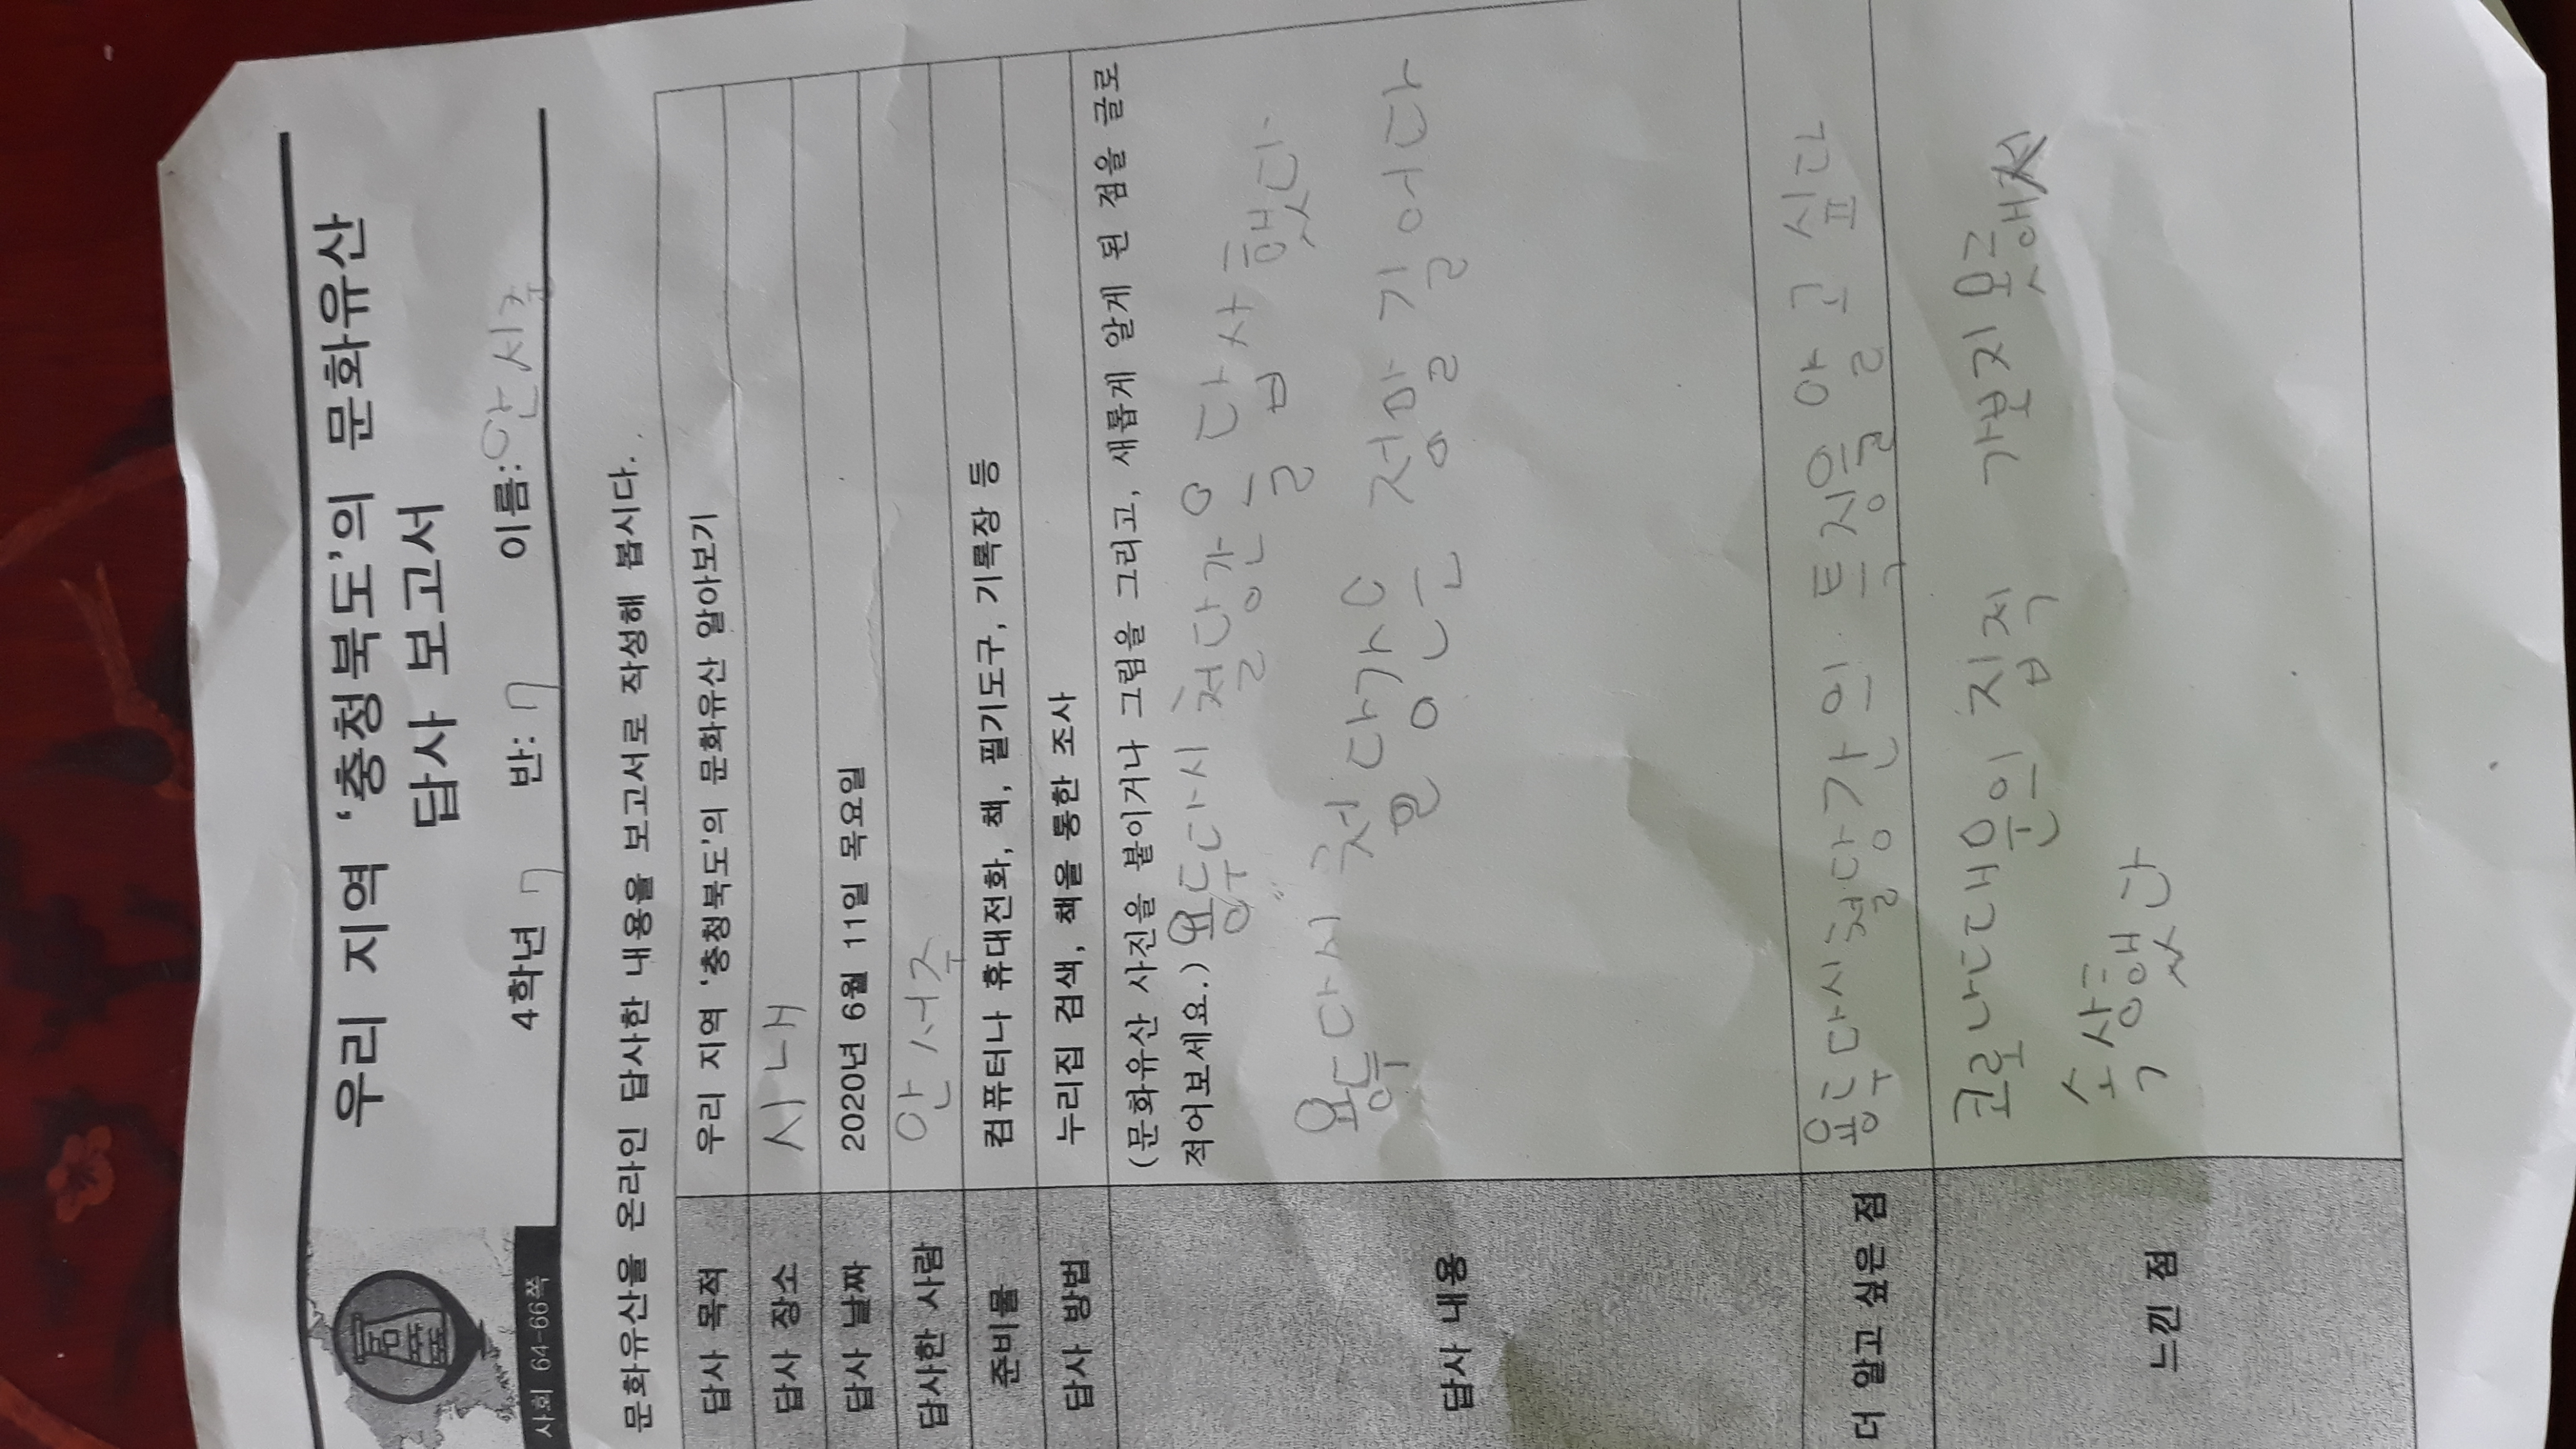 우리 지역 '충청북도'의 문화유산
답사 보고서
사회 64-66쪽
4학년 7 반: 7 이름: 안서주
문화유산을 온라인 답사한 내용을 보고서로 작성해 봅시다.
답사 목적 우리 지역 '충청북도'의 문화유산 알아보기
답사 장소 시내
답사 날짜 2020년 6월 11일 목요일
답사한 사람 안서주
준비물 컴퓨터나 휴대전화, 책, 필기도구, 기록장 등
답사 방법 누리집 검색, 책을 통한 조사
답사 내용
(문화유산 사진을 붙이거나 그림을 그리고, 새롭게 알게 된 점을 글로
적어보세요.) 용두다시 철당간을 답사 했다.
용두다시 철당간은 정말 길어다
더 알고 싶은 점 용두다시철당간의 특징을 알고 싶다
느낀 점
코로나때문의 직접 가보지 못
속상했다